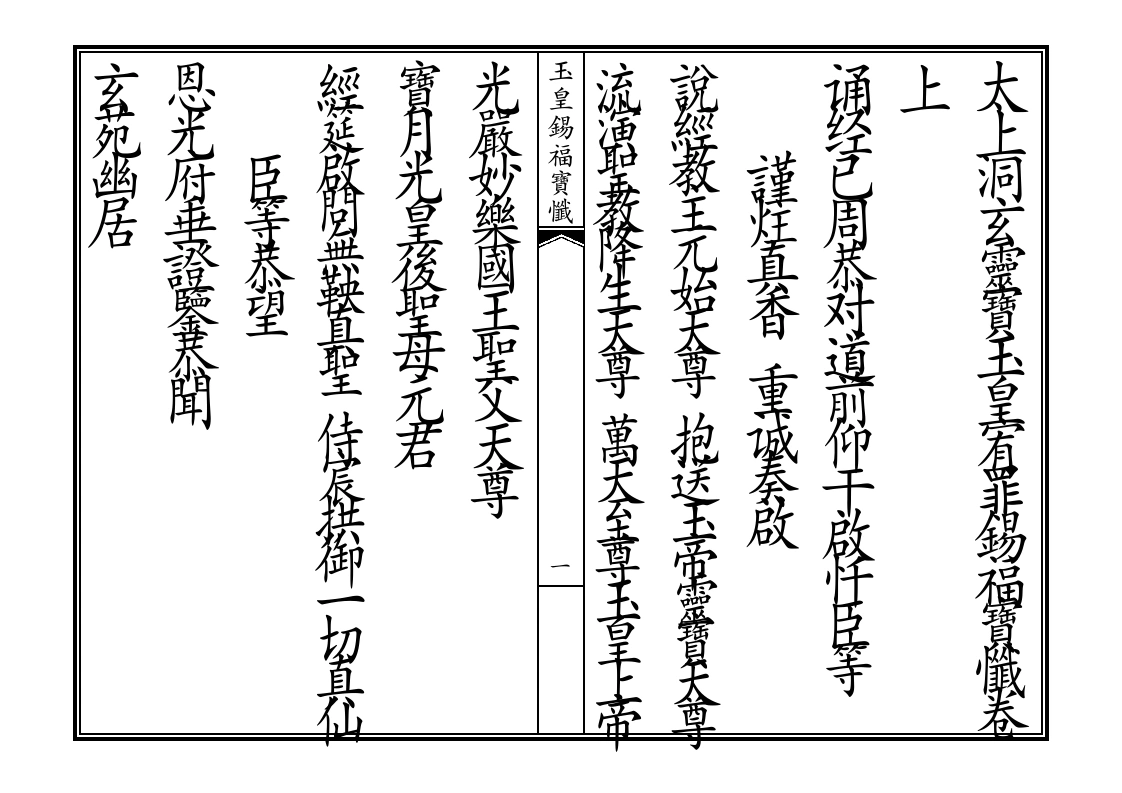 太上洞玄靈寶玉皇宥罪錫福寶懺卷
上
诵经已周恭对道前仰干啟忏臣等
謹炷真香 重诚奏啟
說經教王元始天尊 抱送玉帝靈寶天尊
流演聖教降生天尊 萬天至尊玉皇上帝
玉皇錫福寶懺
一
光嚴妙樂國王聖父天尊
寶月光皇後聖母元君
經筵啟問無鞅真聖 侍宸拱御一切真仙
臣等恭望
恩光府垂證鑒恭聞
玄苑幽居